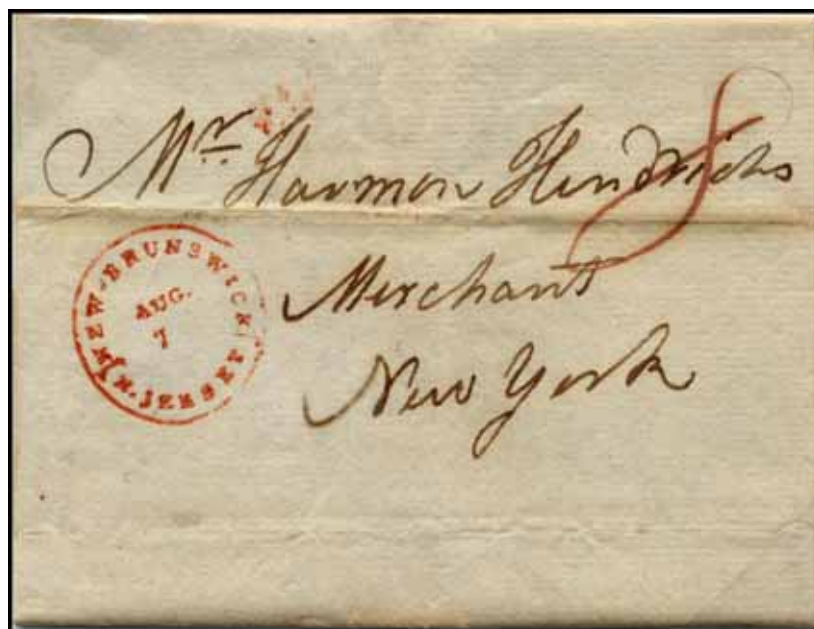 Mr. Harmon Hendricks
8
Merchant
New York
NEW-BRUNSWICK
AUG.
7
N. JERSEY